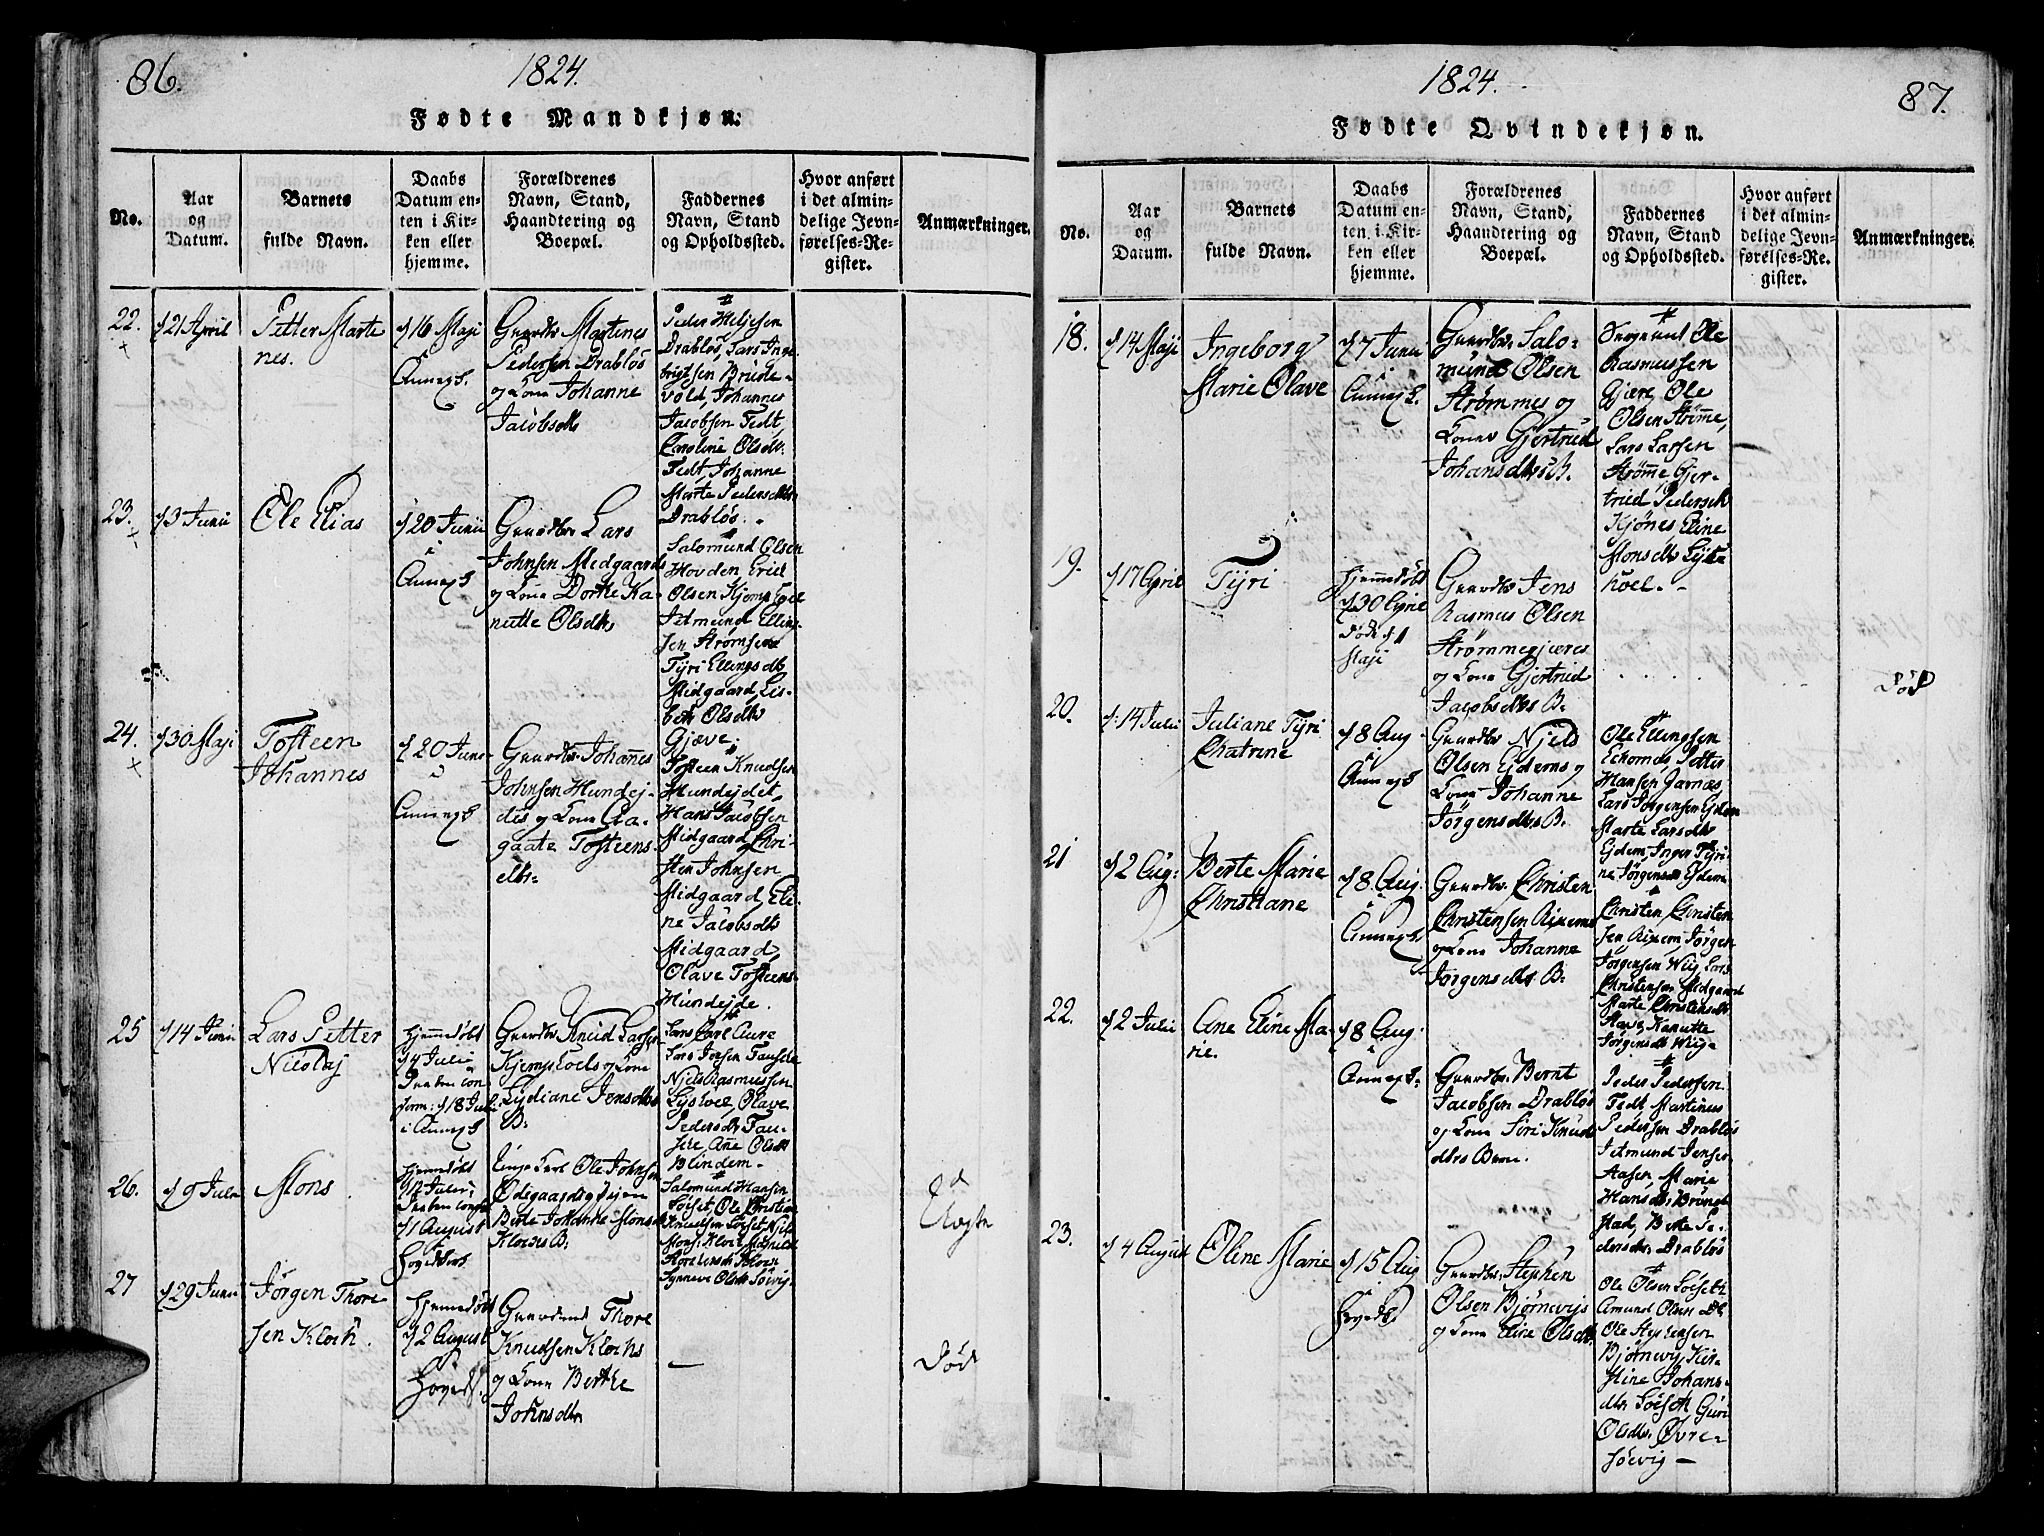 86.
1824.
Fødte Mandkjøn.
No.
Aar
og
Datum.
Barnets
fulde Navn.
Daabs
Datum en-
ten i Kir-
ken eller
hjemme.
Forældrenes
Navn, Stand,
Haandtering og
Boepæl.
Faddernes
Navn, Stand
og Opholdssted.
Hvor anført
i det almin-
delige Jevn-
førelses-Re-
gister.
Anmærkninger.
22.
21 April
Petter Marte
nes.
16 Maji
Annex K.
Gaardbr. Martines
Pedersen Drabløs
og Kone Johanne
Jacobsdtr
Peder Heljesen
Drabløs, Lars Inge
brigtsen Briede-
vold, Johannes
Jacobsen Tedt,
Caroline Olsdtr.
Tedt, Johanne
Marte Pedersdtr
Drabløs.
23.
3 Junii
Ole Elias
20 Junii
Annex K
Gaardbr. Lars
Johnsen Midgaards
og Kone Dorthe Ka
nutte Olsdtr
Salomund Olsen
Hovden Erich
Olsen Kjemphoel
Jetmund Elling-
sen Strømshee
Tyri Ellingsdtr
Midgaard, Lis-
beth Olsdtr
Gjæve.
24.
30 Maji
Tosteen
Johannes
20 Juni
Annex K
Gaardbr. Johannes
Johnsen Hundej-
des og Kone Aa-
gaate Tosteens
dtr.
Tosteen Knudsen
Hundejdet,
Hans Jacobsen
Midgaard, Chri-
sten Johnsen
Midgaard, Eli-
ne Jacobsdtr
Midgaard,
Olave Tosteens-
Hundejde.
25
14 Junii
Lars Petter
Nicolaj
Hjemmedøbt
4 Julii
Daaben con
firm: 18 Juli
i Annex K
Gaardbr. Knud Larsen
Kjemphoels og Kone
Lydiane Jensdtr
B.
Lars Carl Aure
Lars Jensen Fauske
Niels Rasmussen
Lyshoel, Olave
Pedersdtr Fau-
ske, Ane Olsdtr
Blindem.
26.
9 Julii
Mons
Hjemmedøbt
12 Julii,
Daaben confir
1 August
Hovedkirk
Unge Karl Ole Johnsen
Ødegaard og Pigen
Berte Johanne Monsdtr
Klokes B:
Salomund Hansen
Solset, Ole Christian
Knudsen Solset, Niels
Mons: Klock, Mathilde
Korstensdtr Klock
Synneve Olsdtr Søevig
Uægte
27
29 Junii
Jörgen Thore
sen Kloch.
Hjemmedøbt
2 August
Hovedk.
Gaardmand Thore
Knudsen Klochs
og Kone Berthe
Johnsdtr
Død
87.
1824.
Fødte Qvindekjøn.
No.
Aar
og
Datum.
Barnets
fulde Navn.
Daabs
Datum en-
ten i Kir-
ken eller
hjemme.
Forældrenes
Navn, Stand,
Haandtering og
Boepæl.
Faddernes
Navn, Stand
og Opholdssted.
Hvor anført
i det almin-
delige Jevn-
førelses-Re-
gister.
Anmærkninger.
18.
14 Maji
Ingeborg
Marie Olave
7 Junii
i
Annex K.
Gaardbr. Salo-
mund Olsen
Strømmes og
Kones Gjertrud
Johansdtrs B.
Ole
Rasmussen
Gjere, Ole
Olsen Strømme,
Lars Larsen
Strømme, Gjer-
trud Pedersdtr
Kjønes Eline
Monsdtr Lyst
hoel.
19.
17 April
Tyri
Hjemmedøbt
30 April
død 1
Maji
Gaardbr. Jens
Rasmus Olsen
Strømmegjæres
og Kone Gjertrud
Jacobsdtrs B.
Død
20.
14 Julii
Juliane Tyri
Chatrine
8 Aug
i
Annex K
Gaardbr. Njels
Olsen Ejdems og
Kone Johanne
Jørgensdtrs B.
Ole Ellingsen
Ekornæs, Petter
Hansen Jarnæs
Lars Jørgensen Ejdem
Marte Larsdtr
Ejdem, Inger Tyri-
ne Jørgensdtr Ejdem
21
2 Aug:
Berte Marie
Christiane
8 Aug.
i
Annex K.
Gaardbr. Christen
Christensen Riksems
og Kone Johanne
Jørgensdtrs B:
Christen Christen
sen Riksem, Jørgen
Jørgensen Wiig, Lars
Christensen Midgaard
Marte Christensdtr
Kanutte
Jørgensdtr Wiig-
22.
2 Julii
Ane Eline Ma-
rie.
8 Aug
i
Annex K.
Gaardbr. Bernt
Jacobsen Drabløs
og Kone Siri Knuds
dtrs Barn.
Peder Pedersen
Tedt Martinus
Pedersen Drabløs
Jetmund Jensen
Aasen, Marie
Hansdtr Brunst
stad, Berte Pe-
dersdtr. Drabløs
23.
4 August
Oline Marie
15 Aug
Hovedk
Gaardbr. Stephen
Olsen Bjørnevigs
og Kone Eline Olsdtr
Ole Olsen Solseth
Amund Olsen D
Ole Stephensen
Bjørnevig, Kir-
stine Johans-
dtr Solseth, Guri
Olsdtr. Øvre-
søevig -